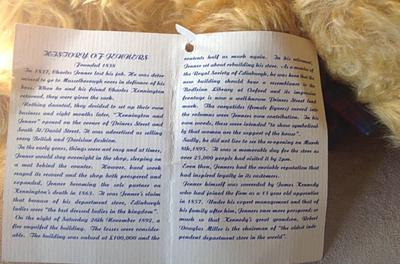 HISTORY OF JENNERS
Founded 1838
In 1837, Charles Jenner lost his job. He was deter-
mined to go to Musselburgh races in defiance of his
boss. When he and his friend Charles Kennington
returned, they were given the sack.
Nothing daunted, they decided to set up their own
business and eight months later, "Kennington and
Jenner" opened on the corner of Princes Street and
South St/David Street. It was advertised as selling
every British and Parisian fashion.
In the early years, things were not easy and at times,
Jenner would stay overnight in the shop, sleeping on
a mat behind the counter. However, hard work
reaped its reward and the shop both prospered and
expanded, Jenner becoming the sole partner on
Kennington's death in 1863. It was Jenner's claim
that because of his department store, Edinburgh
ladies were "the best dressed ladies in the kingdom".
On the night of Saturday 26th November 1892, a
fire engulfed the building. The losses were consider-
able. The building was valued at £100,000 and the
contents half as much again. In his retirement,
Jenner set about rebuilding his store. As a member of
the Royal Society of Edinburgh, he was keen that the
new building should have a resemblance to the
Bodleian Library at Oxford and its impressive
frontage is now a well-known Princes Street land
mark. The caryatides (female figures) carved into
the columns were Jenners own contribution. In his
own words, these were intended "to show symbolically
that women are the support of the house".
Sadly, he did not live to see the re-opening on March
8th, 1895. It was a memorable day for the store as
over 25,000 people had visited it by 2pm.
Even then, Jenners had the enviable reputation that
had inspired loyalty in its customers.
Jenner himself was succeeded by James Kennedy
who had joined the firm as a 13 year old apprentice
in 1857. Under his expert management and that of
his family after him, Jenners once more prospered, so
much so that Kennedy's great grandson, Robert
Douglas Miller is the chairman of "the oldest inde-
pendent department store in the world".